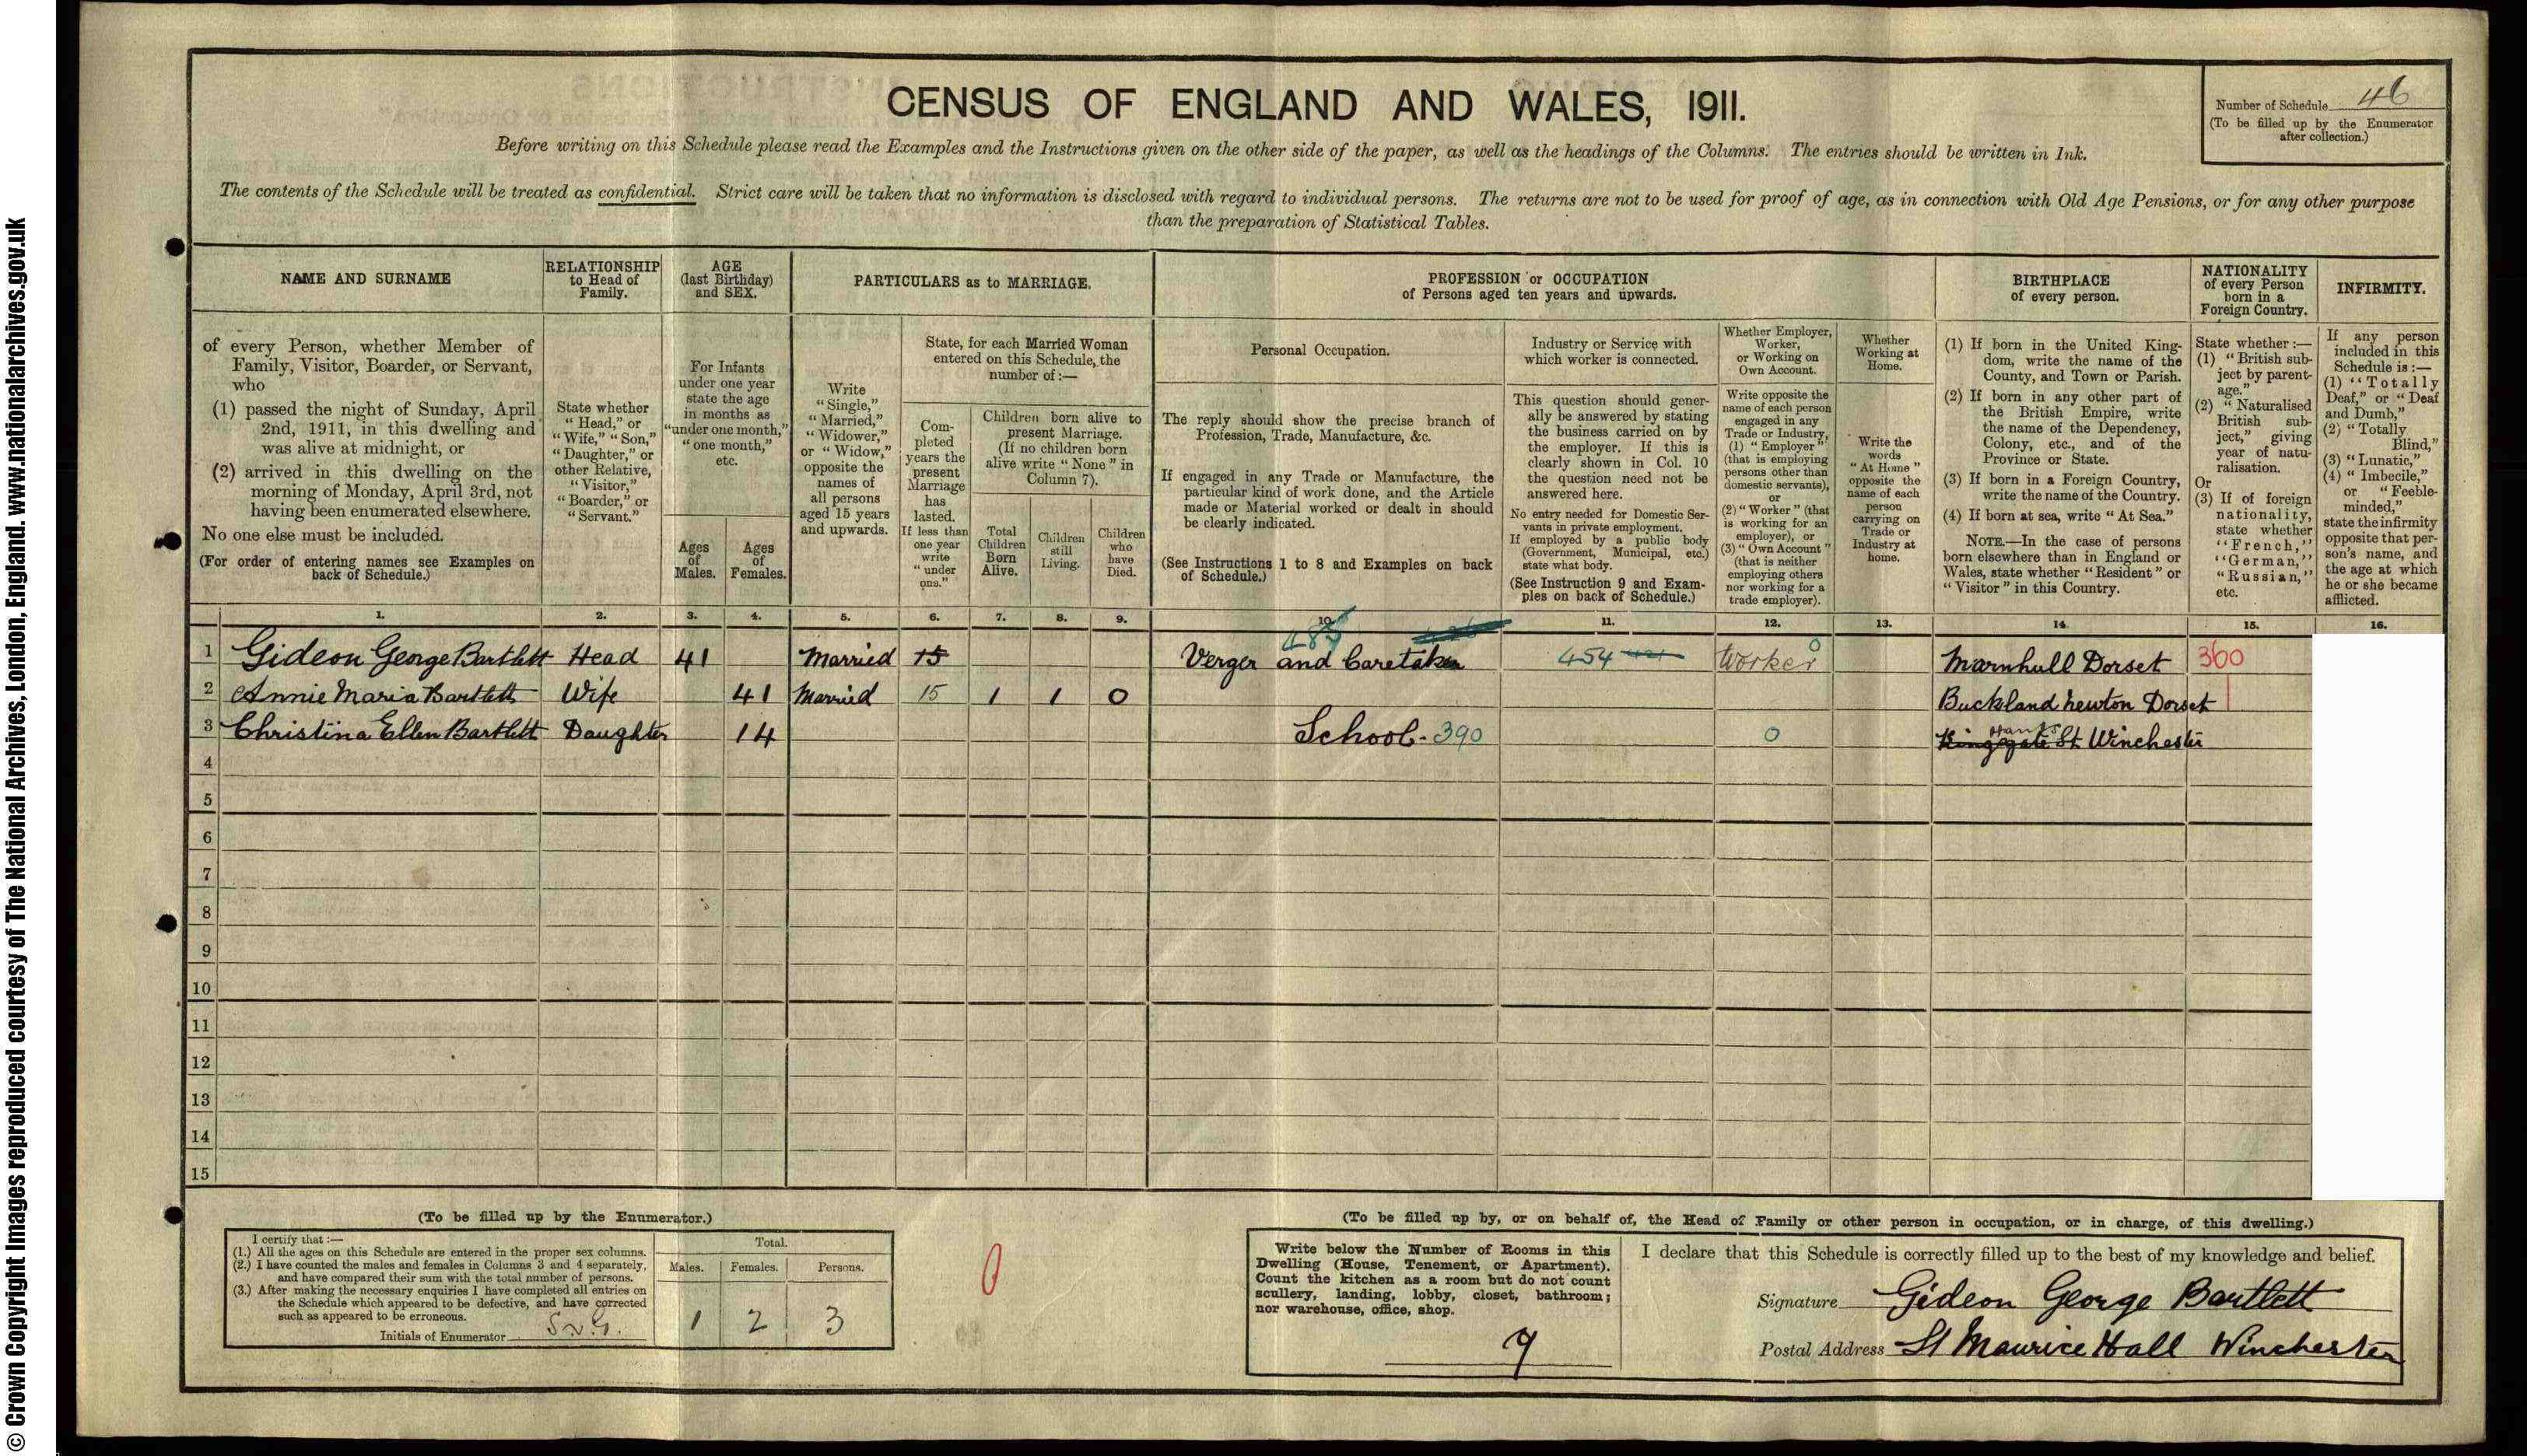 © Crown Copyright Images reproduced courtesy of The National Archives, London, England. www.nationalarchives.gov.uk
CENSUS OF ENGLAND AND WALES, 1911.
Number of Schedule 46
(To be filled up by the Enumerator
after collection.)
Before writing on this Schedule please read the Examples and the Instructions given on the other side of the paper, as well as the headings of the Columns. The entries should be written in Ink.
The contents of the Schedule will be treated as confidential. Strict care will be taken that no information is disclosed with regard to individual persons. The returns are not to be used for proof of age, as in connection with Old Age Pensions, or for any other purpose
than the preparation of Statistical Tables.
NAME AND SURNAME
of every Person, whether Member of
Family, Visitor, Boarder, or Servant,
who
(1) passed the night of Sunday, April
2nd, 1911, in this dwelling and
was alive at midnight, or
(2) arrived in this dwelling on the
morning of Monday, April 3rd, not
having been enumerated elsewhere.
No one else must be included.
(For order of entering names see Examples on
back of Schedule.)
RELATIONSHIP
to Head of
Family.
State whether
"Head," or
"Wife," "Son,"
"Daughter," or
other Relative,
"Visitor,"
"Boarder," or
"Servant."
AGE
(last Birthday)
and SEX.
For Infants
under one year
state the age
in months as
"under one month,"
"one month,"
etc.
Ages
of
Males.
Ages
of
Females.
PARTICULARS as to MARRIAGE.
Write
"Single,"
"Married,"
"Widower,"
or "Widow,"
opposite the
names of
all persons
aged 15 years
and upwards.
State, for each Married Woman
entered on this Schedule, the
number of:—
Com-
pleted
years the
present
Marriage
has
lasted.
If less than
one year
write
"under
one."
Children born alive to
present Marriage.
(If no children born
alive write "None" in
Column 7).
Total
Children
Born
Alive.
Children
still
Living.
Children
who
have
Died.
PROFESSION or OCCUPATION
of Persons aged ten years and upwards.
Personal Occupation.
The reply should show the precise branch of
Profession, Trade, Manufacture, &c.
If engaged in any Trade or Manufacture, the
particular kind of work done, and the Article
made or Material worked or dealt in should
be clearly indicated.
(See Instructions 1 to 8 and Examples on back
of Schedule.)
Industry or Service with
which worker is connected.
This question should gener-
ally be answered by stating
the business carried on by
the employer. If this is
clearly shown in Col. 10
the question need not be
answered here.
No entry needed for Domestic Ser-
vants in private employment.
If employed by a public body
(Government, Municipal, etc.)
state what body.
(See Instruction 9 and Exam-
ples on back of Schedule.)
Whether Employer,
Worker,
or Working on
Own Account.
Write opposite the
name of each person
engaged in any
Trade or Industry,
(1) "Employer"
(that is employing
persons other than
domestic servants),
or
(2) "Worker" (that
is working for an
employer), or
(3) "Own Account"
(that is neither
employing others
nor working for a
trade employer).
Whether
Working at
Home.
Write the
words
"At Home"
opposite the
name of each
person
carrying on
Trade or
Industry at
home.
BIRTHPLACE
of every person.
(1) If born in the United King-
dom, write the name of the
County, and Town or Parish.
(2) If born in any other part of
the British Empire, write
the name of the Dependency,
Colony, etc., and of the
Province or State.
(3) If born in a Foreign Country,
write the name of the Country.
(4) If born at sea, write "At Sea."
NOTE.—In the case of persons
born elsewhere than in England or
Wales, state whether "Resident" or
"Visitor" in this Country.
NATIONALITY
of every Person
born in a
Foreign Country.
State whether:—
(1) "British sub-
ject by parent-
age."
(2) "Naturalised
British sub-
ject," giving
year of natu-
ralisation.
Or
(3) If of foreign
nationality,
state whether
"French,"
"German,"
"Russian,"
etc.
INFIRMITY.
If any person
included in this
Schedule is:—
(1) "Totally
Deaf," or "Deaf
and Dumb,"
(2) "Totally
Blind,"
(3) "Lunatic,"
(4) "Imbecile,"
or "Feeble-
minded,"
state the infirmity
opposite that per-
son's name, and
the age at which
he or she became
afflicted.
1. 2. 3. 4. 5. 6. 7. 8. 9. 10. 11. 12. 13. 14. 15. 16.
1 Gideon George Bartlett Head 41 Married 15 Verger and Caretaker 454 Worker 0 Marnhull Dorset 360
2 Annie Maria Bartlett Wife 41 Married 15 1 1 0 Buckland Newton Dorset
3 Christina Ellen Bartlett Daughter 14 School. 390 0 Kingsgate St Hants Winchester
4
5
6
7
8
9
10
11
12
13
14
15
(To be filled up by the Enumerator.)
I certify that:—
(1.) All the ages on this Schedule are entered in the proper sex columns.
(2.) I have counted the males and females in Columns 3 and 4 separately,
and have compared their sum with the total number of persons.
(3.) After making the necessary enquiries I have completed all entries on
the Schedule which appeared to be defective, and have corrected
such as appeared to be erroneous.
Initials of Enumerator
Total.
Males. Females. Persons.
1 2 3
0
(To be filled up by, or on behalf of, the Head of Family or other person in occupation, or in charge, of this dwelling.)
Write below the Number of Rooms in this
Dwelling (House, Tenement, or Apartment).
Count the kitchen as a room but do not count
scullery, landing, lobby, closet, bathroom;
nor warehouse, office, shop.
I declare that this Schedule is correctly filled up to the best of my knowledge and belief.
Signature Gideon George Bartlett
Postal Address St Maurice Hall Winchester